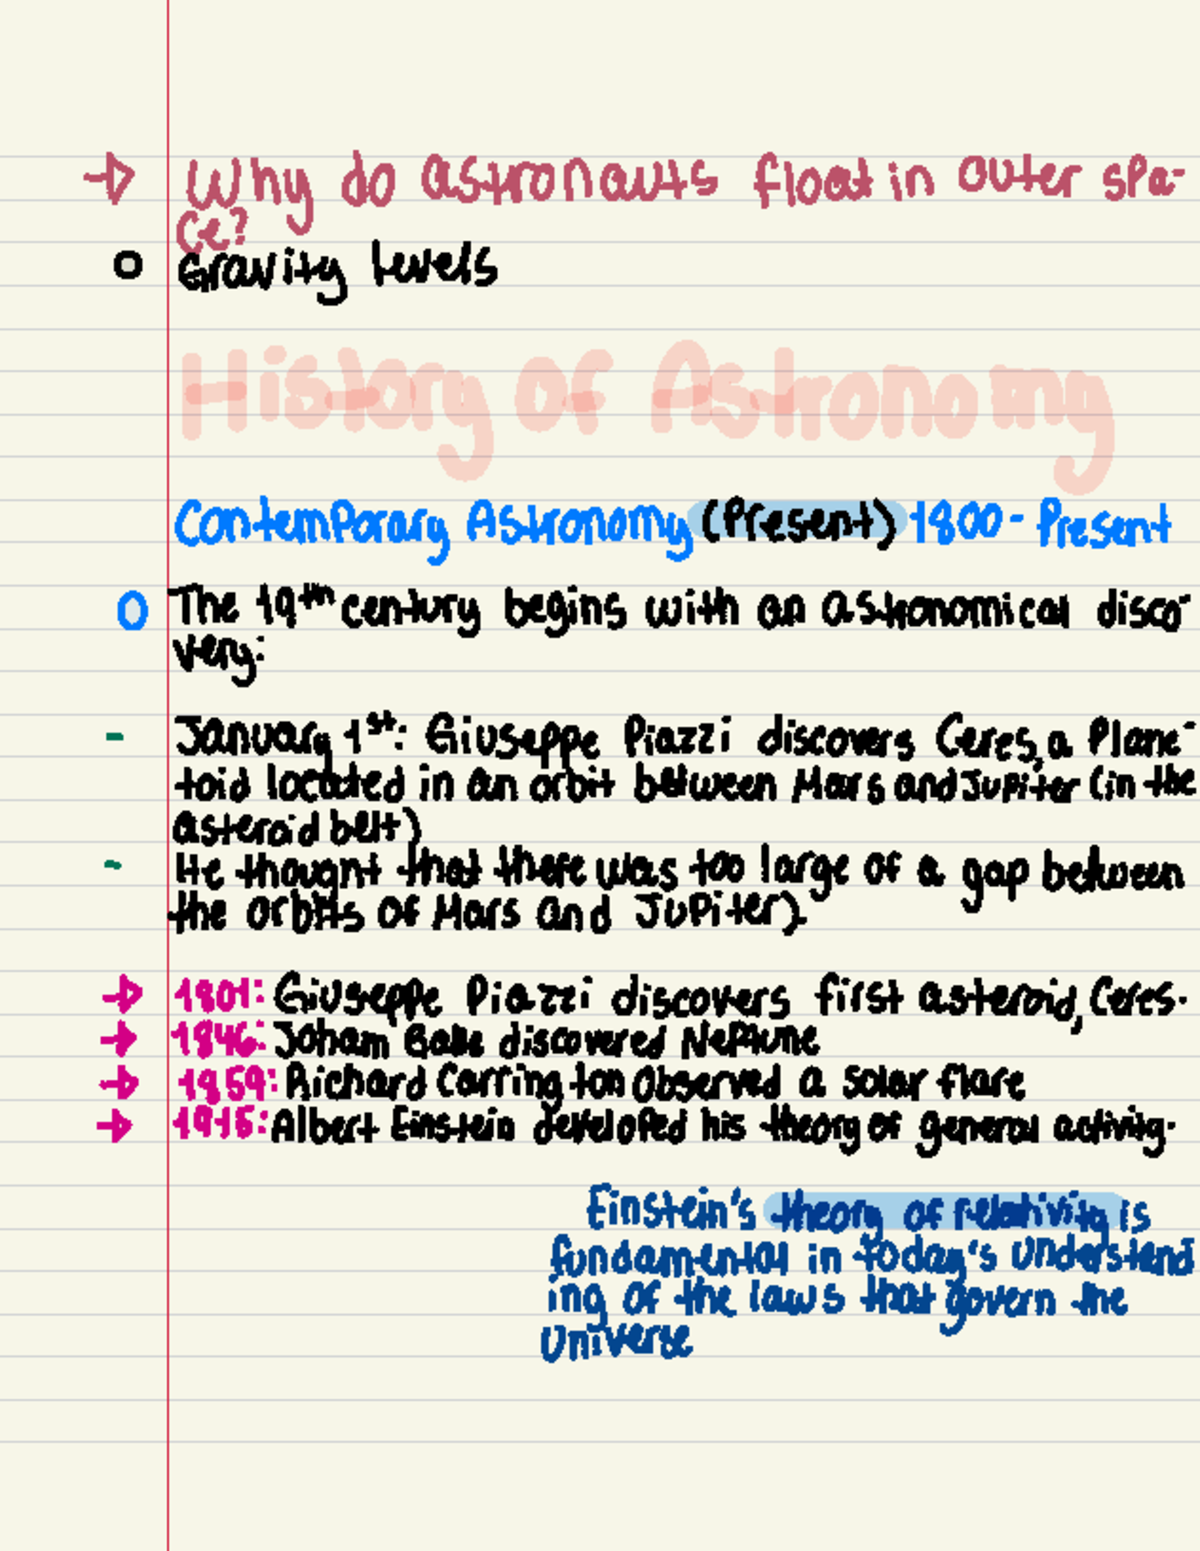 Why do astronauts float in outer spa-
ce?
Gravity levels
History of Astronomy
Contemporary Astronomy (Present) 1800 - Present
The 19th century begins with an astronomical disco-
very:
- January 1st: Giuseppe Piazzi discovers Ceres, a Plane-
toid located in an orbit between Mars and Jupiter (in the
asteroid belt)
- He thought that there was too large of a gap between
the orbits of Mars and Jupiter).
1801: Giuseppe Piazzi discovers first asteroid, Ceres.
1846: Joham Galle discovered Neptune
1859: Richard Carrington observed a solar flare
1915: Albert Einstein developed his theory of general activity.
Einstein's theory of relativity is
fundamental in today's understand
ing of the laws that govern the
Universe